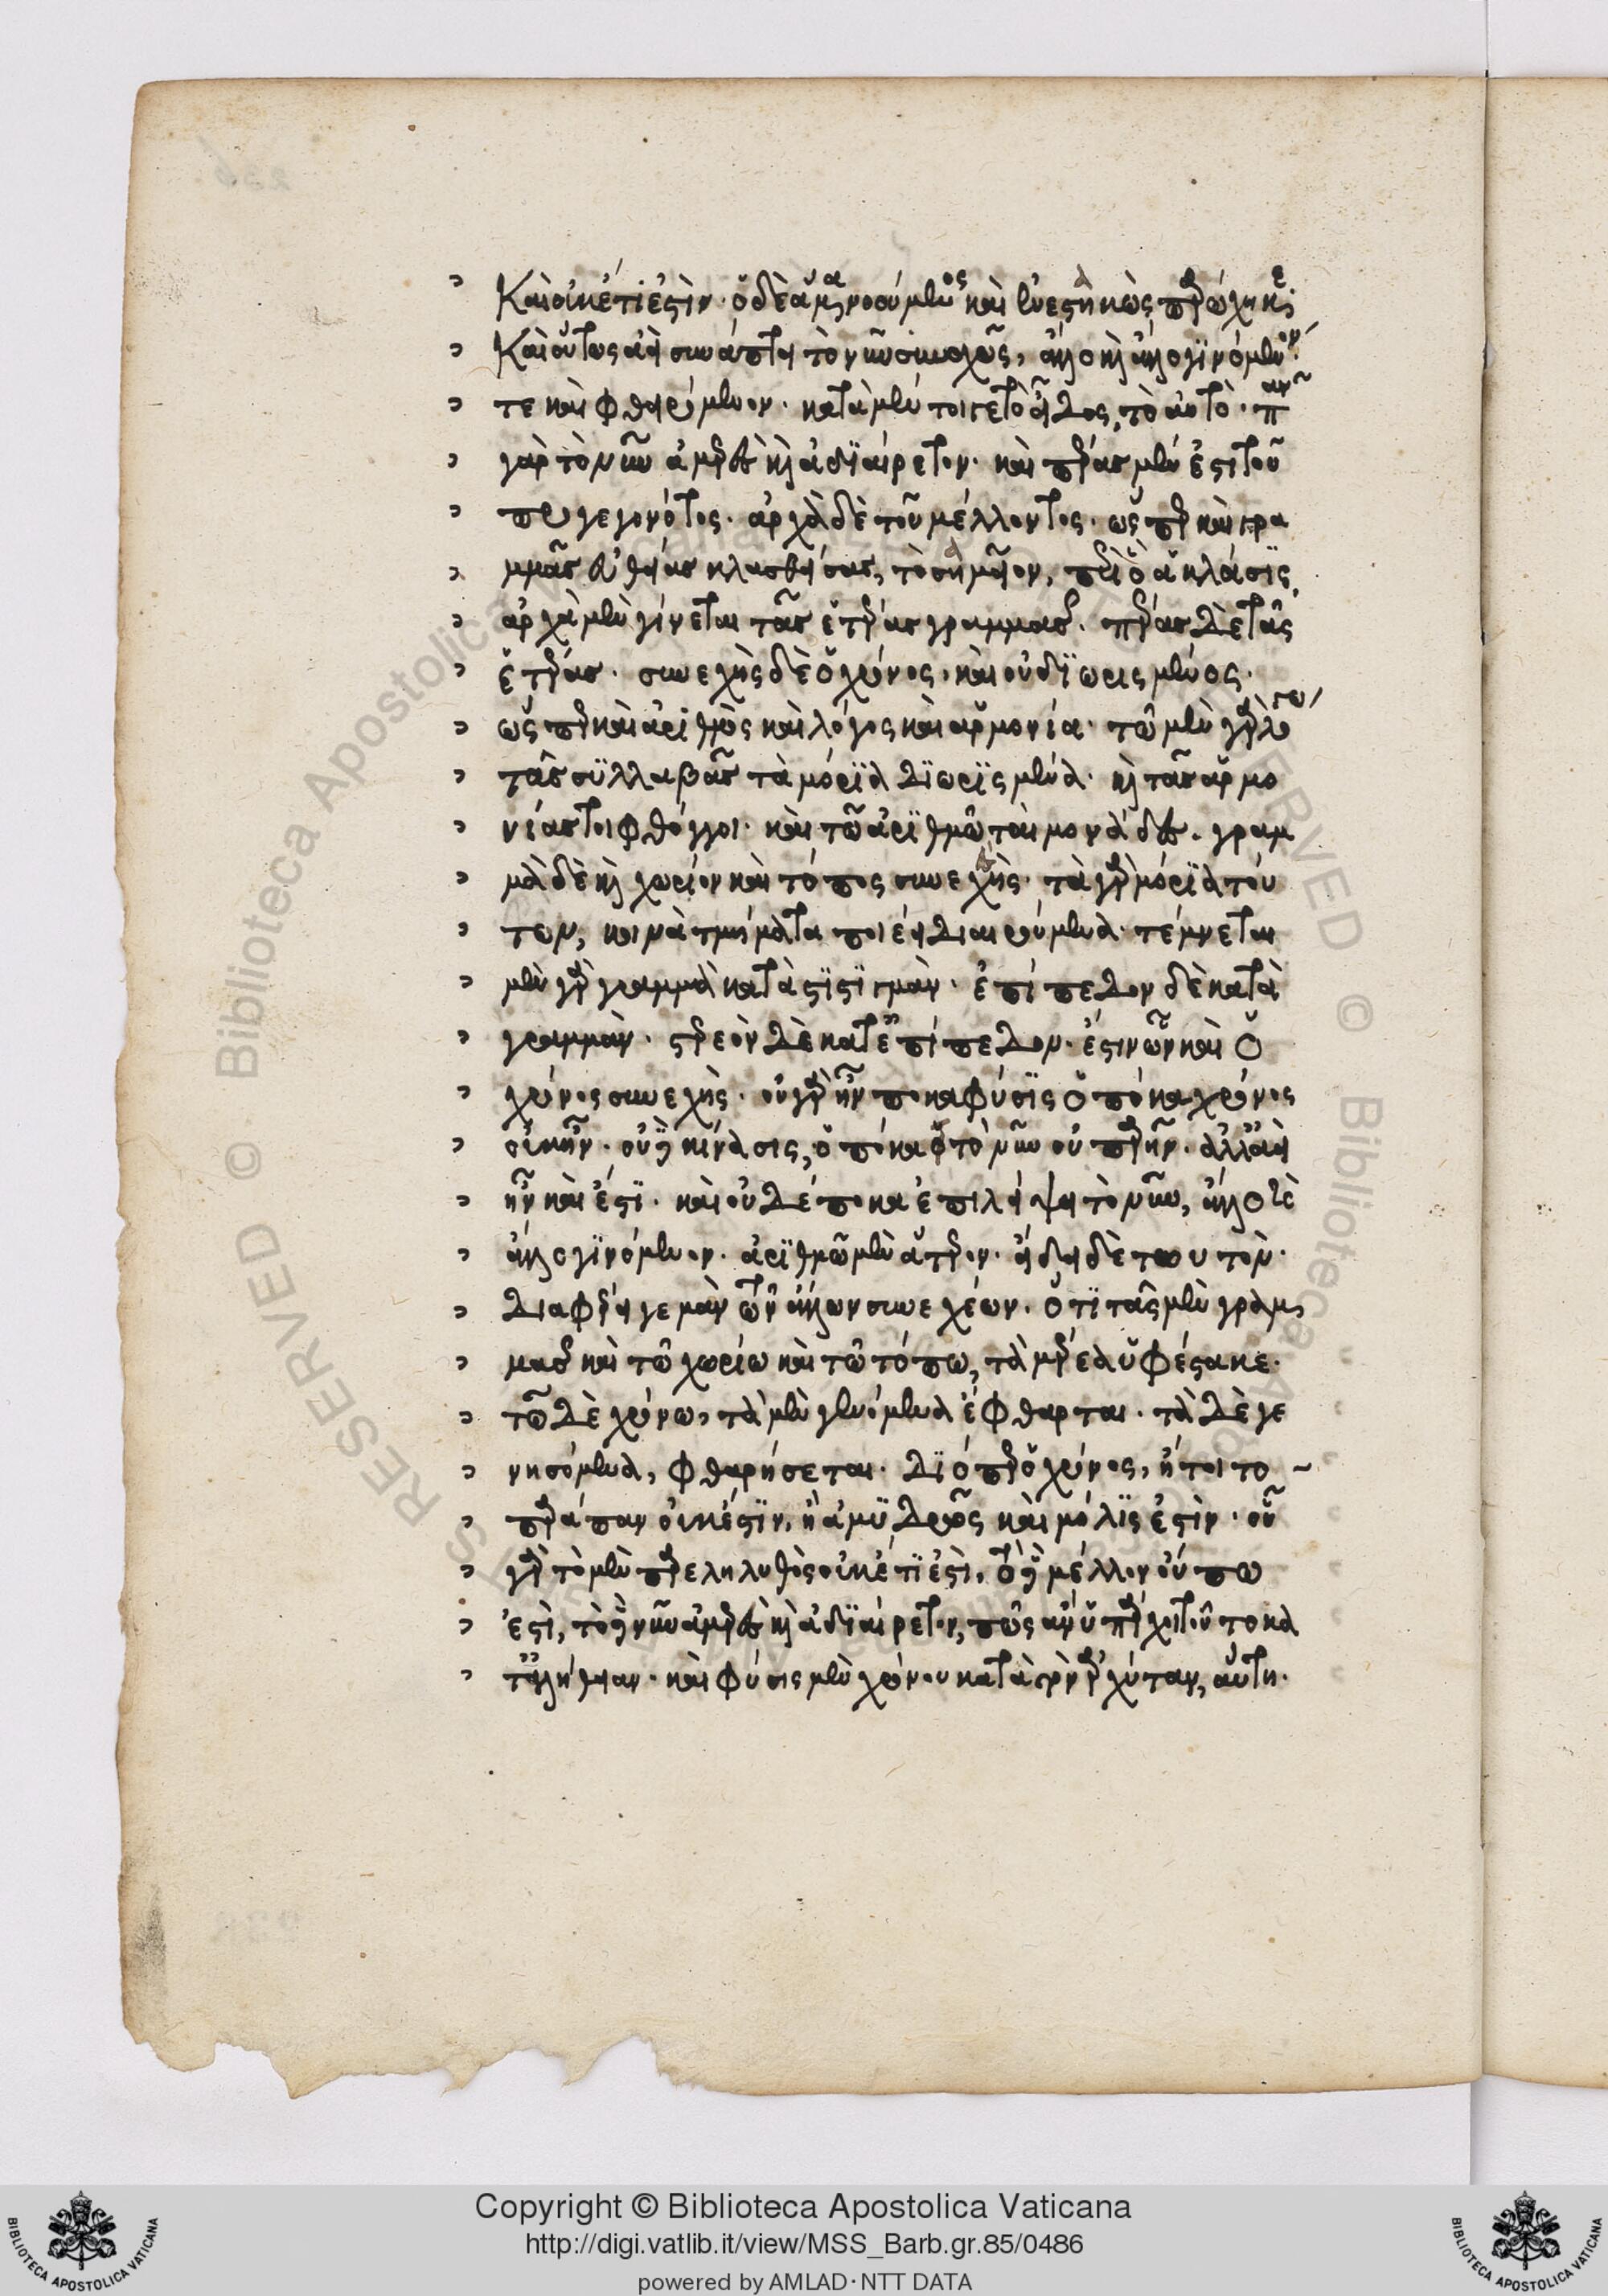 Καὶ οὐκέτι ἐστὶν· ὁ δὲ ἅμα νοούμενος καὶ ἐνεστηκὼς παρώχηκε·
Καὶ οὕτως ἀεὶ συνάπτει τὸ νῦν συνεχῶς, ἄλλο καὶ ἄλλο γινόμενόν
τε καὶ φθειρόμενον· κατὰ μέν τοι γε τὸ εἶδος, τὸ αὐτὸ· πᾶν
γὰρ τὸ νῦν ἀμερὲς καὶ ἀδιαίρετον· καὶ πέρας μέν ἐστι τοῦ
προγεγονότος· ἀρχὰ δὲ τοῦ μέλλοντος· ὥσπερ καὶ γρα
μμᾶς εὐθείας κλασθείσας, τὸ σημεῖον, περὶ ὃ ἁ κλάσις,
ἀρχὰ μὲν γίνεται τᾶς ἑτέρας γραμμᾶς· πέρας δὲ τᾶς
ἑτέρας· συνεχὴς δὲ ὁ χρόνος· καὶ οὐ διωρισμένος·
ὥσπερ καὶ ἀριθμὸς καὶ λόγος καὶ ἁρμονία· τῶ μὲν γὰρ λόγω
τᾶς συλλαβᾶς τὰ μόρια διωρισμένα· καὶ τᾶς ἁρμο
νίας τοι φθόγγοι· καὶ τῶ ἀριθμῶ ται μονάδες· γραμ
μὰ δὲ καὶ χωρίον καὶ τόπος συνεχὴς· τὰ γὰρ μόρια τού
των, κοινὰ τμήματα ποιέει διαιρούμενα· τέμνεται
μὲν γὰρ γραμμὰ κατὰ στιγμὰν· ἐπίπεδον δὲ κατὰ
γραμμὰν· στερεὸν δὲ κατ' ἐπίπεδον· ἐστιν ὦν καὶ ὁ
χρόνος συνεχὴς· οὐ γὰρ ἦν ποκα φύσις ὅπόκα χρόνος
οὐκ ἦν· οὐδὲ κίνασις, ὅπόκα τὸ νῦν οὐ παρῆν· ἀλλὰ ἀεὶ
ἦν καὶ ἐστι· καὶ οὐδέποκα ἐπιλείψει τὸ νῦν, ἄλλο καὶ
ἄλλο γινόμενον· ἀριθμῶ μὲν ἅτερον· εἴδει δὲ τωυτὸν·
διαφέρει γε μὰν τῶν ἄλλων συνεχέων· ὅτι τᾶς μὲν γραμ
μᾶς καὶ τῶ χωρίω καὶ τῶ τόπω, τὰ μέρεα ὑφέστακε·
τῶ δὲ χρόνω, τὰ μὲν γενόμενα ἔφθαρται· τὰ δὲ γε
νησόμενα, φθαρήσεται· διόπερ ὁ χρόνος, ἤτοι το
παράπαν οὐκ ἔστιν, ἢ ἀμυδρῶς καὶ μόλις ἐστὶν· οὗ
γὰρ τὸ μὲν παρεληλυθὸς οὐκέτι ἐστὶ, τὸ δὲ μέλλον οὔπω
ἐστὶ, τὸ δὲ νῦν ἀμερὲς καὶ ἀδιαίρετον, πῶς ἂν ὑπάρχοι τοῦτο κα
τ' ἀλήθειαν· καὶ φύσις μὲν χρόνου κατὰ τὸν ἀρχύταν, αὕτη·
Copyright © Biblioteca Apostolica Vaticana
http://digi.vatlib.it/view/MSS_Barb.gr.85/0486
powered by AMLAD·NTT DATA